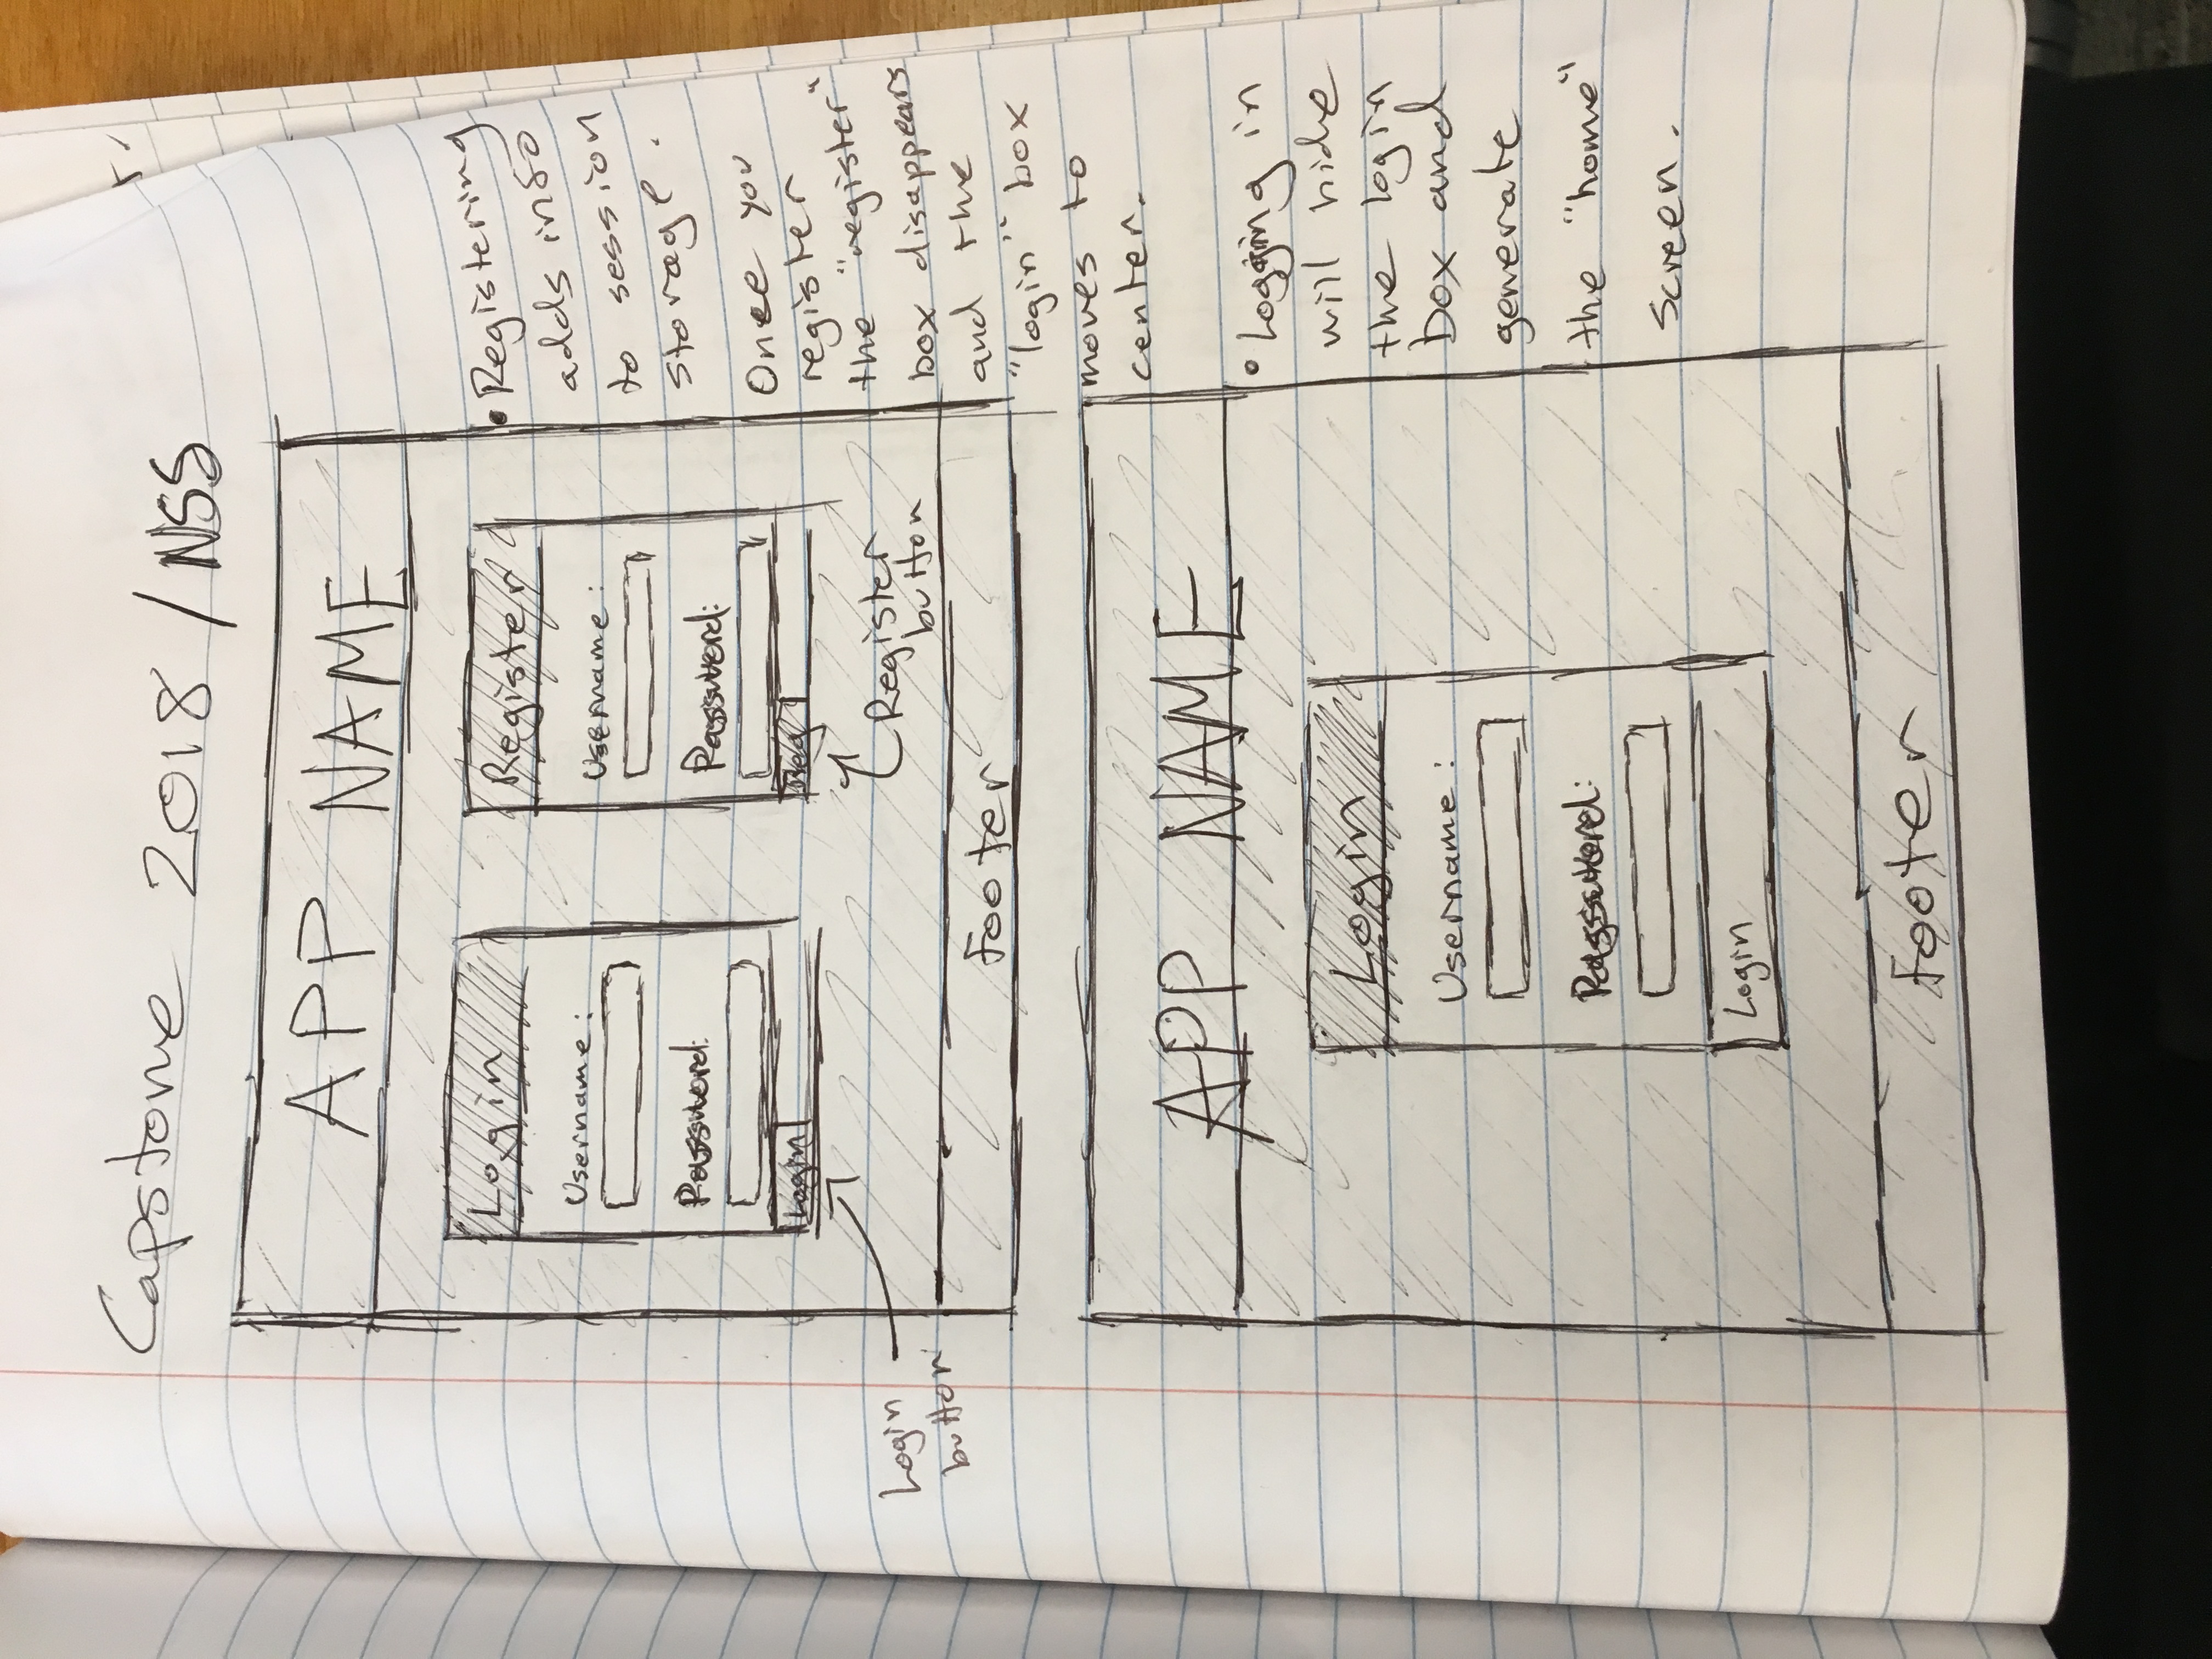 Capstone 2018 / NSS
APP NAME
Login
Username:
Password:
Login
Login
button
Register
Username:
Password:
Reg
Register
button
Footer
• Registering
adds info
to session
storage.
Once you
register
the "register"
box disappears
and the
"login" box
moves to
center.
APP NAME
Login
Username:
Password:
Login
Footer
• Logging in
will hide
the login
box and
generate
the "home"
screen.